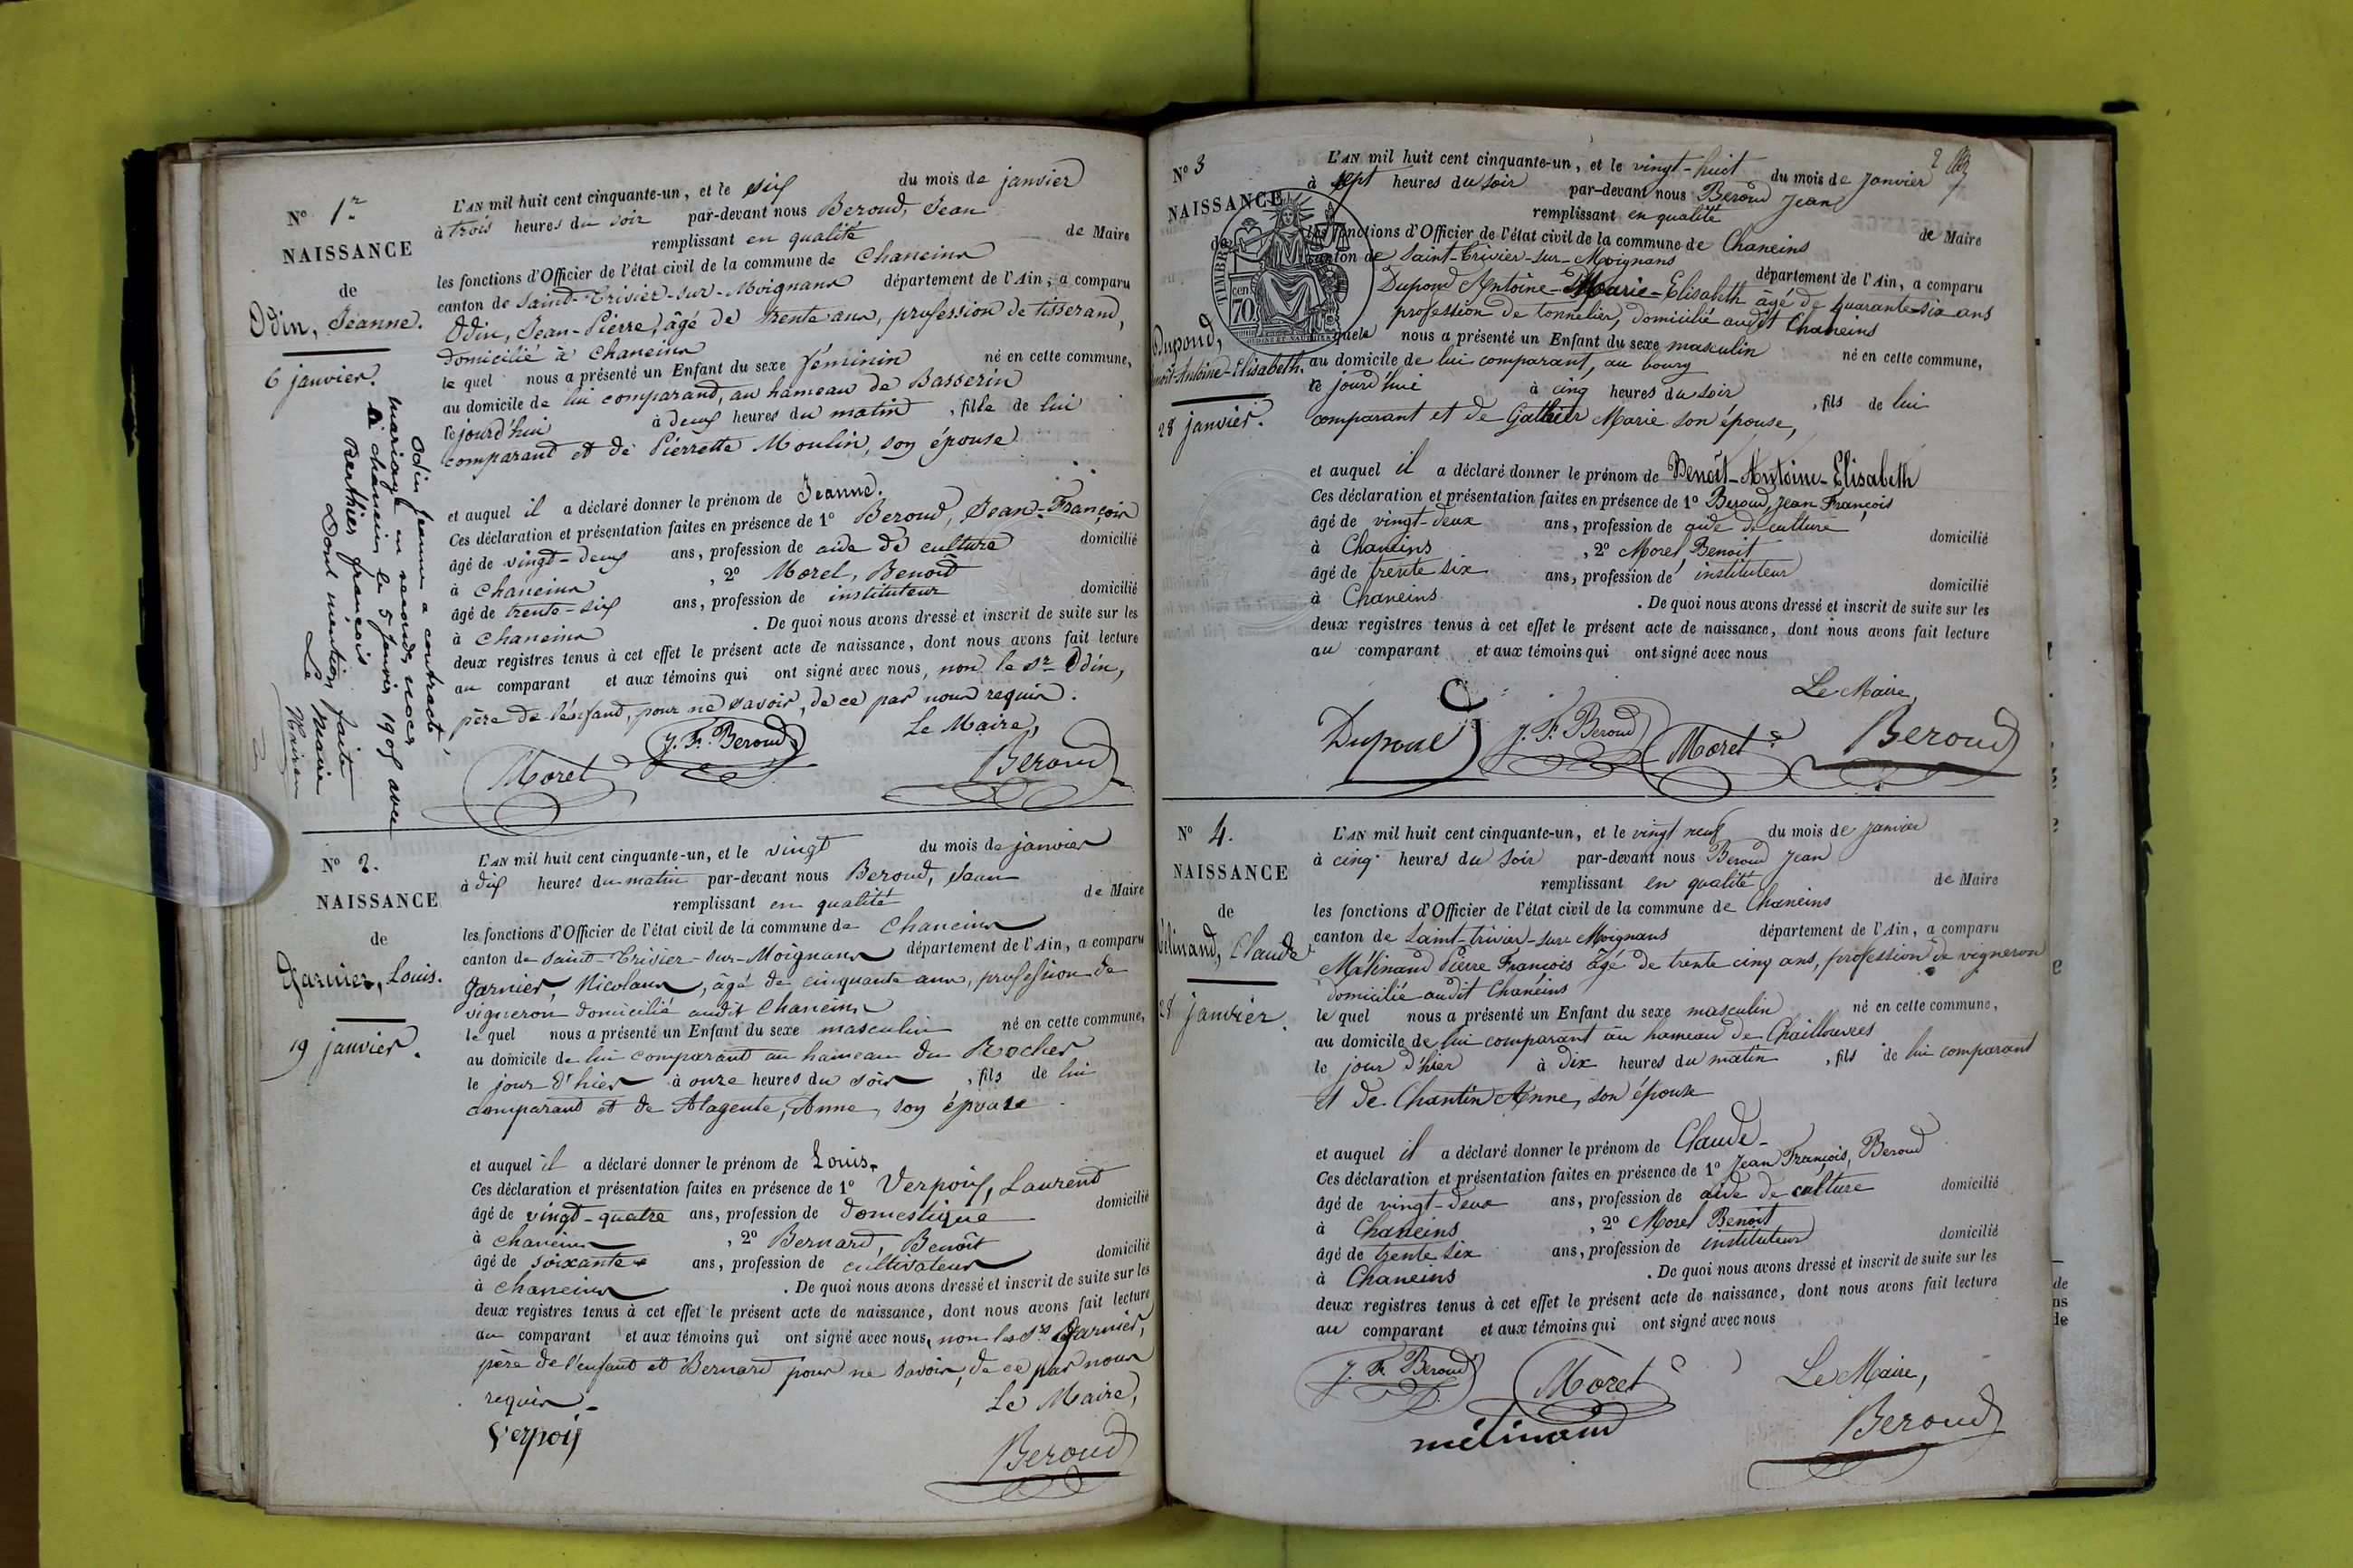 N° 1er
NAISSANCE
de
Odin, Jeanne.
6 janvier.
Odin Jeanne a contracté
mariage en secondes noces
à chaneins le 5 janvier 1905 avec
Berthier françois
Dont mention faite
Le Maire
L'AN mil huit cent cinquante-un, et le six du mois de janvier
à trois heures du soir par-devant nous Beroud, Jean
remplissant en qualité de Maire
les fonctions d'Officier de l'état civil de la commune de Chaneins
canton de Saint-Trivier-sur-Moignans département de l'Ain, a comparu
Odin, Jean-Pierre, âgé de trente ans, profession de tisserand,
domicilié à Chaneins
le quel nous a présenté un Enfant du sexe féminin né en cette commune,
au domicile de lui comparand, au hameau de Basserin
ce jourd'hui à deux heures du matin, fille de lui
comparand et de Pierrette Moulin, son épouse
et auquel il a déclaré donner le prénom de Jeanne.
Ces déclaration et présentation faites en présence de 1° Beroud, Jean-François
âgé de vingt-deux ans, profession de aide de culture domicilié
à Chaneins, 2° Morel, Benoît
âgé de trente-six ans, profession de instituteur domicilié
à Chaneins. De quoi nous avons dressé et inscrit de suite sur les
deux registres tenus à cet effet le présent acte de naissance, dont nous avons fait lecture
au comparant et aux témoins qui ont signé avec nous, non le Sr Odin,
père de l'enfand, pour ne savoir, de ce par nous requis.
Le Maire,
Morel J. F. Beroud Beroud
N° 2.
NAISSANCE
de
Garnier, Louis.
19 janvier.
L'AN mil huit cent cinquante-un, et le vingt du mois de janvier
à dix heures du matin par-devant nous Beroud, Jean
remplissant en qualité de Maire
les fonctions d'Officier de l'état civil de la commune de Chaneins
canton de Saint-Trivier-sur-Moignans département de l'Ain, a comparu
Garnier, Nicolaus, âgé de cinquante ans, profession de
vigneron domicilié audit Chaneins
le quel nous a présenté un Enfant du sexe masculin né en cette commune,
au domicile de lui comparant au hameau du Rocher
le jour d'hier à onze heures du soir, fils de lui
comparand et de Alagente, Anne, son épouse
et auquel il a déclaré donner le prénom de Louis.
Ces déclaration et présentation faites en présence de 1° Verpoix, Laurend
âgé de vingt-quatre ans, profession de domestique domicilié
à Chaneins, 2° Bernard, Benoît
âgé de soixante ans, profession de cultivateur domicilié
à Chaneins. De quoi nous avons dressé et inscrit de suite sur les
deux registres tenus à cet effet le présent acte de naissance, dont nous avons fait lecture
au comparant et aux témoins qui ont signé avec nous, non les Srs Garnier,
père de l'enfant et Bernard pour ne savoir, de ce par nous
requis.
Le Maire,
Verpoix
Beroud
N° 3
NAISSANCE
de
Dupond,
Benoît-Antoine-Elisabeth.
28 janvier.
TIMBRE
70 cen
2
L'AN mil huit cent cinquante-un, et le vingt-huit du mois de Janvier
à sept heures du soir par-devant nous Beroud Jean
remplissant en qualité de Maire
les fonctions d'Officier de l'état civil de la commune de Chaneins
canton de Saint-Trivier-sur-Moignans département de l'Ain, a comparu
Dupond Antoine-Marie-Elisabeth âgé de quarante-six ans
profession de tonnelier, domicilié audit Chaneins
lequel nous a présenté un Enfant du sexe masculin né en cette commune,
au domicile de lui comparant, au bourg
ce jourd'hui à cinq heures du soir, fils de lui
comparant et de Gallier Marie son épouse,
et auquel il a déclaré donner le prénom de Benoît-Antoine-Elisabeth
Ces déclaration et présentation faites en présence de 1° Beroud, Jean François
âgé de vingt-deux ans, profession de aide de culture domicilié
à Chaneins, 2° Morel Benoit
âgé de trente six ans, profession de instituteur domicilié
à Chaneins. De quoi nous avons dressé et inscrit de suite sur les
deux registres tenus à cet effet le présent acte de naissance, dont nous avons fait lecture
au comparant et aux témoins qui ont signé avec nous
Le Maire,
Dupond J. F. Beroud Morel Beroud
N° 4.
NAISSANCE
de
Mélinand, Claude
28 janvier.
L'AN mil huit cent cinquante-un, et le vingt neuf du mois de Janvier
à cinq heures du soir par-devant nous Beroud Jean
remplissant en qualité de Maire
les fonctions d'Officier de l'état civil de la commune de Chaneins
canton de Saint-trivier-sur Moignans département de l'Ain, a comparu
Mélinand Pierre François âgé de trente cinq ans, profession de vigneron
domicilié audit Chaneins
le quel nous a présenté un Enfant du sexe masculin né en cette commune,
au domicile de lui comparant au hameau de Chaillouvres
le jour d'hier à dix heures du matin, fils de lui comparant
et de Chantin Anne, son épouse
et auquel il a déclaré donner le prénom de Claude
Ces déclaration et présentation faites en présence de 1° Jean François, Beroud
âgé de vingt-deux ans, profession de aide de culture domicilié
à Chaneins, 2° Morel Benoit
âgé de trente six ans, profession de instituteur domicilié
à Chaneins. De quoi nous avons dressé et inscrit de suite sur les
deux registres tenus à cet effet le présent acte de naissance, dont nous avons fait lecture
au comparant et aux témoins qui ont signé avec nous
J. F. Beroud Morel Le Maire,
mélinand Beroud